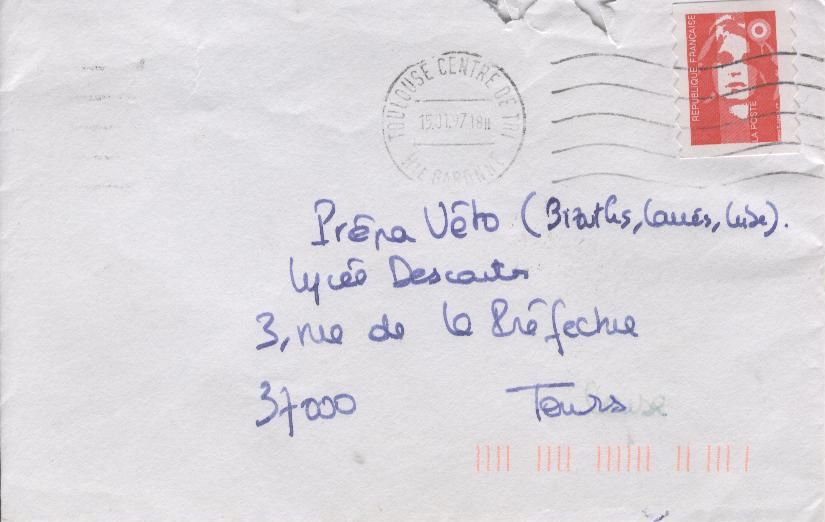 TOULOUSE CENTRE DE TRI
15.01.97 18H
HTE GARONNE
REPUBLIQUE FRANÇAISE
LA POSTE
Prépa Véto (Bizuths, Carrés, Cube).
Lycée Descartes
3, rue de la Préfecture
37000 Tours